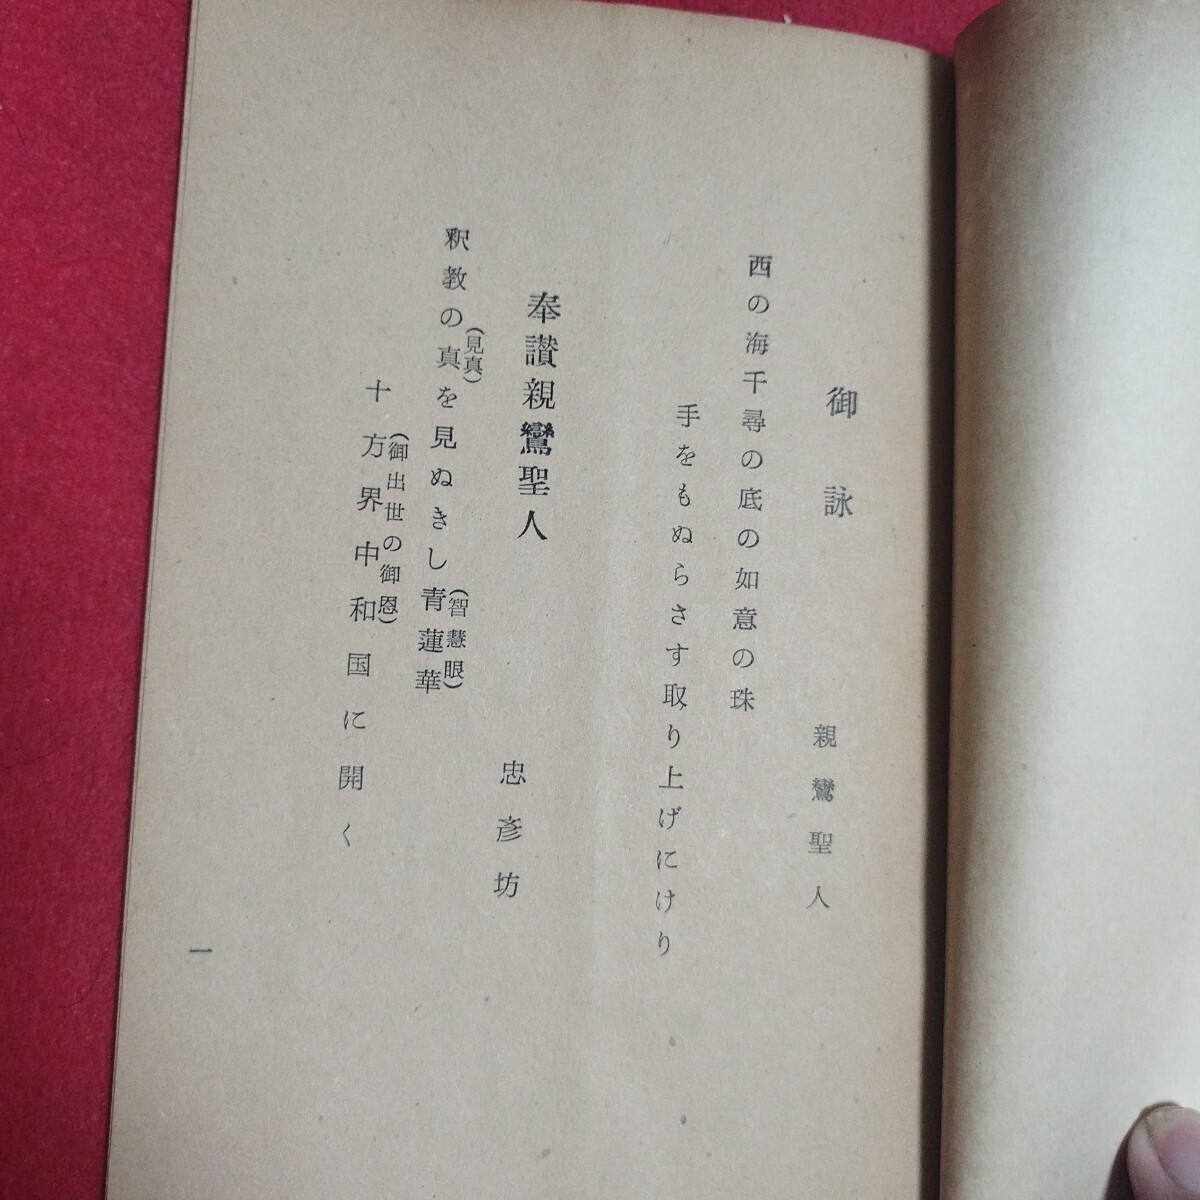 御詠
親鸞聖人
西の海千尋の底の如意の珠
手をもぬらさす取り上げにけり
奉讃親鸞聖人
忠彦坊
釈教の真を見ぬきし青蓮華
(見真)
(智慧眼)
十方界中和国に開く
(御出世の御恩)
一